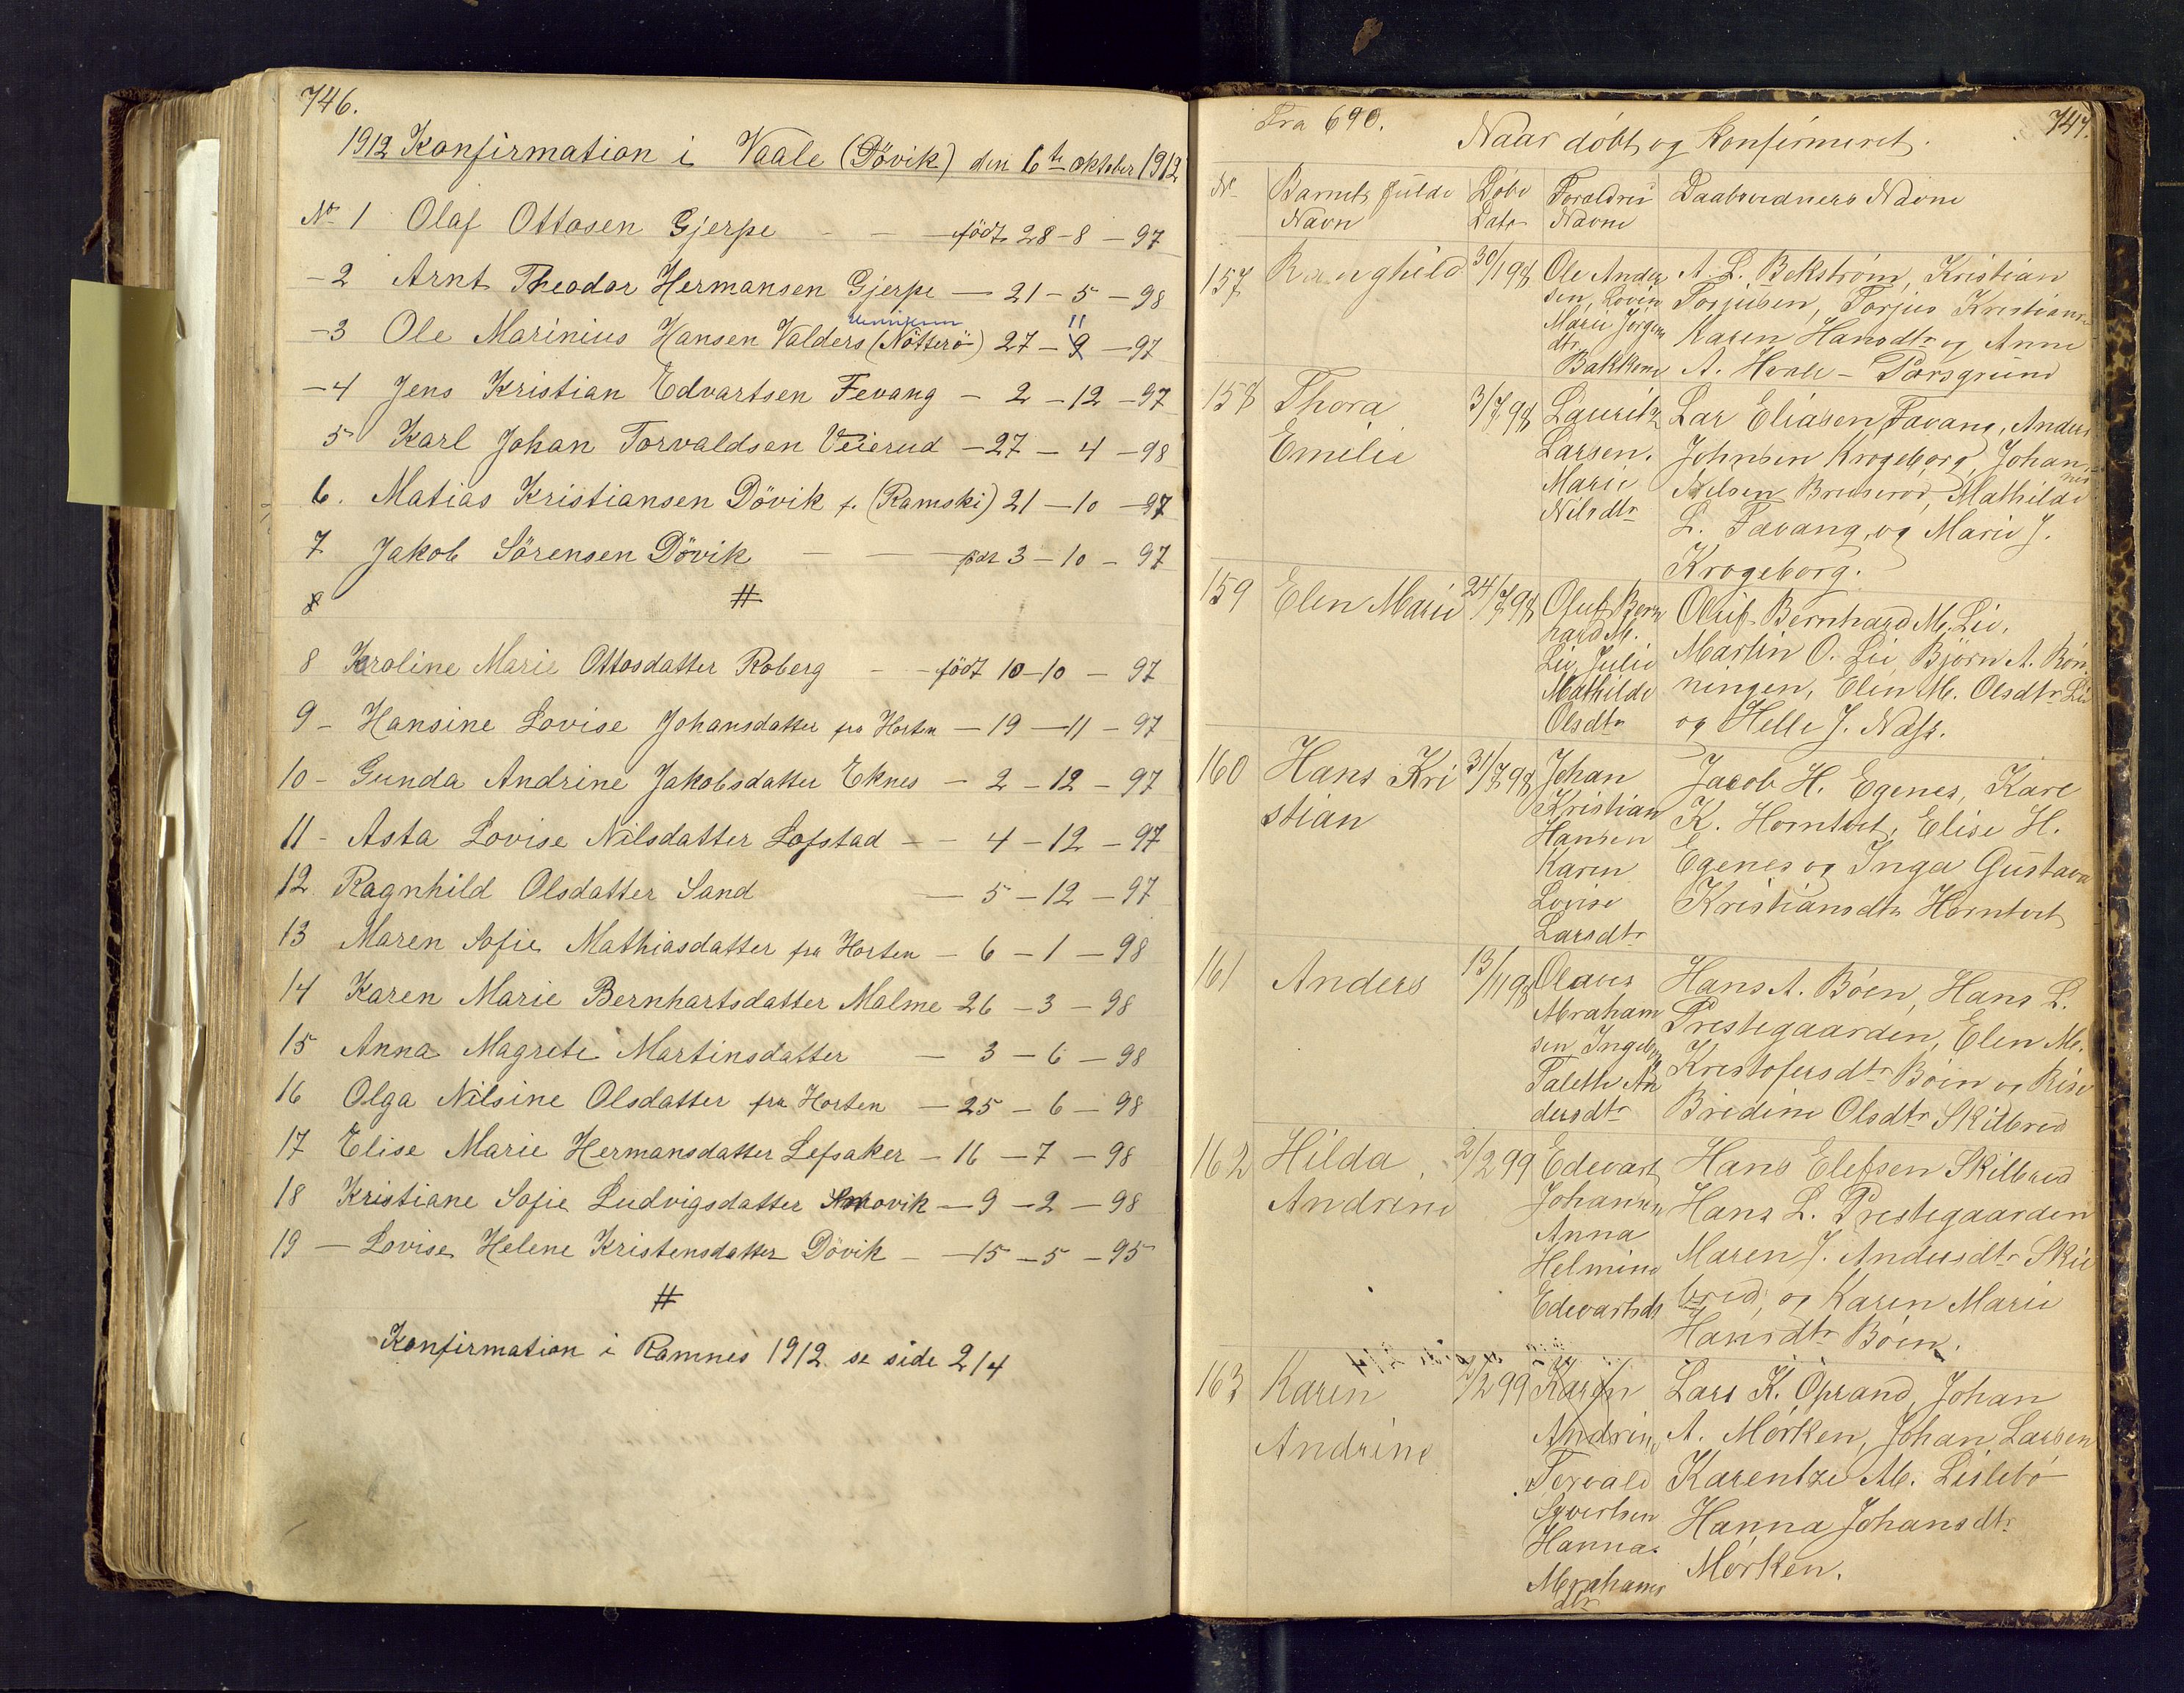 746.
1912 Konfirmation i Vaale (Dövik) den 6te oktober 1912
No 1 Olaf Ottosen Gjerpe - - - född 28-8-97
-2 Arnt Theodor Hermansen Gjerpe - 21-5-98
11
-3 Ole Marinius Hansen Valders (Nötterö) 27-9-97
-4 Jens Kristian Edvartsen Fevang - 2-12-97
5 Karl Johan Torvaldsen Veierud - 27-4-98
6. Matias Kristiansen Dövik f. (Ramski) 21-10-97
7 Jakob Sörensen Dövik - - - 3-10-97
8 #
8 Karoline Marie Ottosdatter Roberg - - född 10-10-97
9- Hansine Lovise Johansdatter fra Horten - 19-11-97
10- Gunda Andrine Jakobsdatter Eknes - 2-12-97
11- Asta Lovise Nilsdatter Lofstad - - 4-12-97
12 Ragnhild Olsdatter Sand - 5-12-97
13 Maren Sofie Mathiasdatter fra Horten - 6-1-98
14 Karen Marie Bernhartsdatter Malme 26-3-98
15 Anna Magrete Martinsdatter - 3-6-98
16 Olga Nilsine Olsdatter fra Horten - 25-6-98
17 Elise Marie Hermansdatter Lefsaker - 16-7-98
18 Kristiane Sofie Ludvigsdatter - 9-2-98
19 - Lovise Helene Kristensdatter Dövik - - 15-5-95
#
Konfirmation i Ramnes 1912 se side 214
Fra 690. 747.
Naar döbt og Konfirmeret.
N. Barnets fulde Döbe Foreldres Daabsvidners Navne
Navn Dato Navne
157 Ranghild 30/1 98 Ole Ander A. L. Bekström, Kristian
sen, Lovin Torjusen, Torjus Kristians
Marie Jörgen Karen Hansdtr og Anne
dtr
Bakkene A. Hvale - Porsgrund
158 Thora 3/7 98 Lauritz Lar Eliasen Favang, Anders
Emelie Larsen. Johnsen Krogeborg, Johan
nes
Marie Nilsen Bruserod, Mathilde
Nilsdtr L. Favang, og Marie J.
Krogeborg.
159 Elen Marie 24/7 98 Oluf Bern Oluf Bernhard M. Lie,
hard M. Martin O. Lie, Björn A. Rön
Lie, Julie
Mathilde ningen, Elen M. Olsdtr Lie
Olsdtr og Helle J. Næss.
160 Hans Kri 31/7 98 Johan Jacob H. Egenes, Karl
stian Kristian K. Horntvet, Elise H.
Hansen
Karen Egenes og Inga Gustava
Lovise Kristiansdtr Horntvet
Larsdtr
161 Anders 13/11 98 Olaus Hans A. Böen, Hans L.
Abraham Prestegaarden, Elen M.
sen Ingeborg
Talette An Kristofersdtr Böen og Rise
dersdtr Bredine Olsdtr Skilbred
162 Hilda 2/2 99 Edevart Hans Elefsen Skilbred
Andrine Johannsen Hans L. Prestegaarden
Anna
Helmine Maren J. Andersdtr Skil
Edevartsdt bred, og Karen Marie
Hansdtr Böen.
163 Karen /2 99 Karen Lars K. Öprand, Johan
Andrine Andrine A. Mörken, Johan Larsen
Torvald Karentze M. Lislebö
Syvertsen Hanna Johansdtr
Hanna
Abrahams Mörken.
dtr